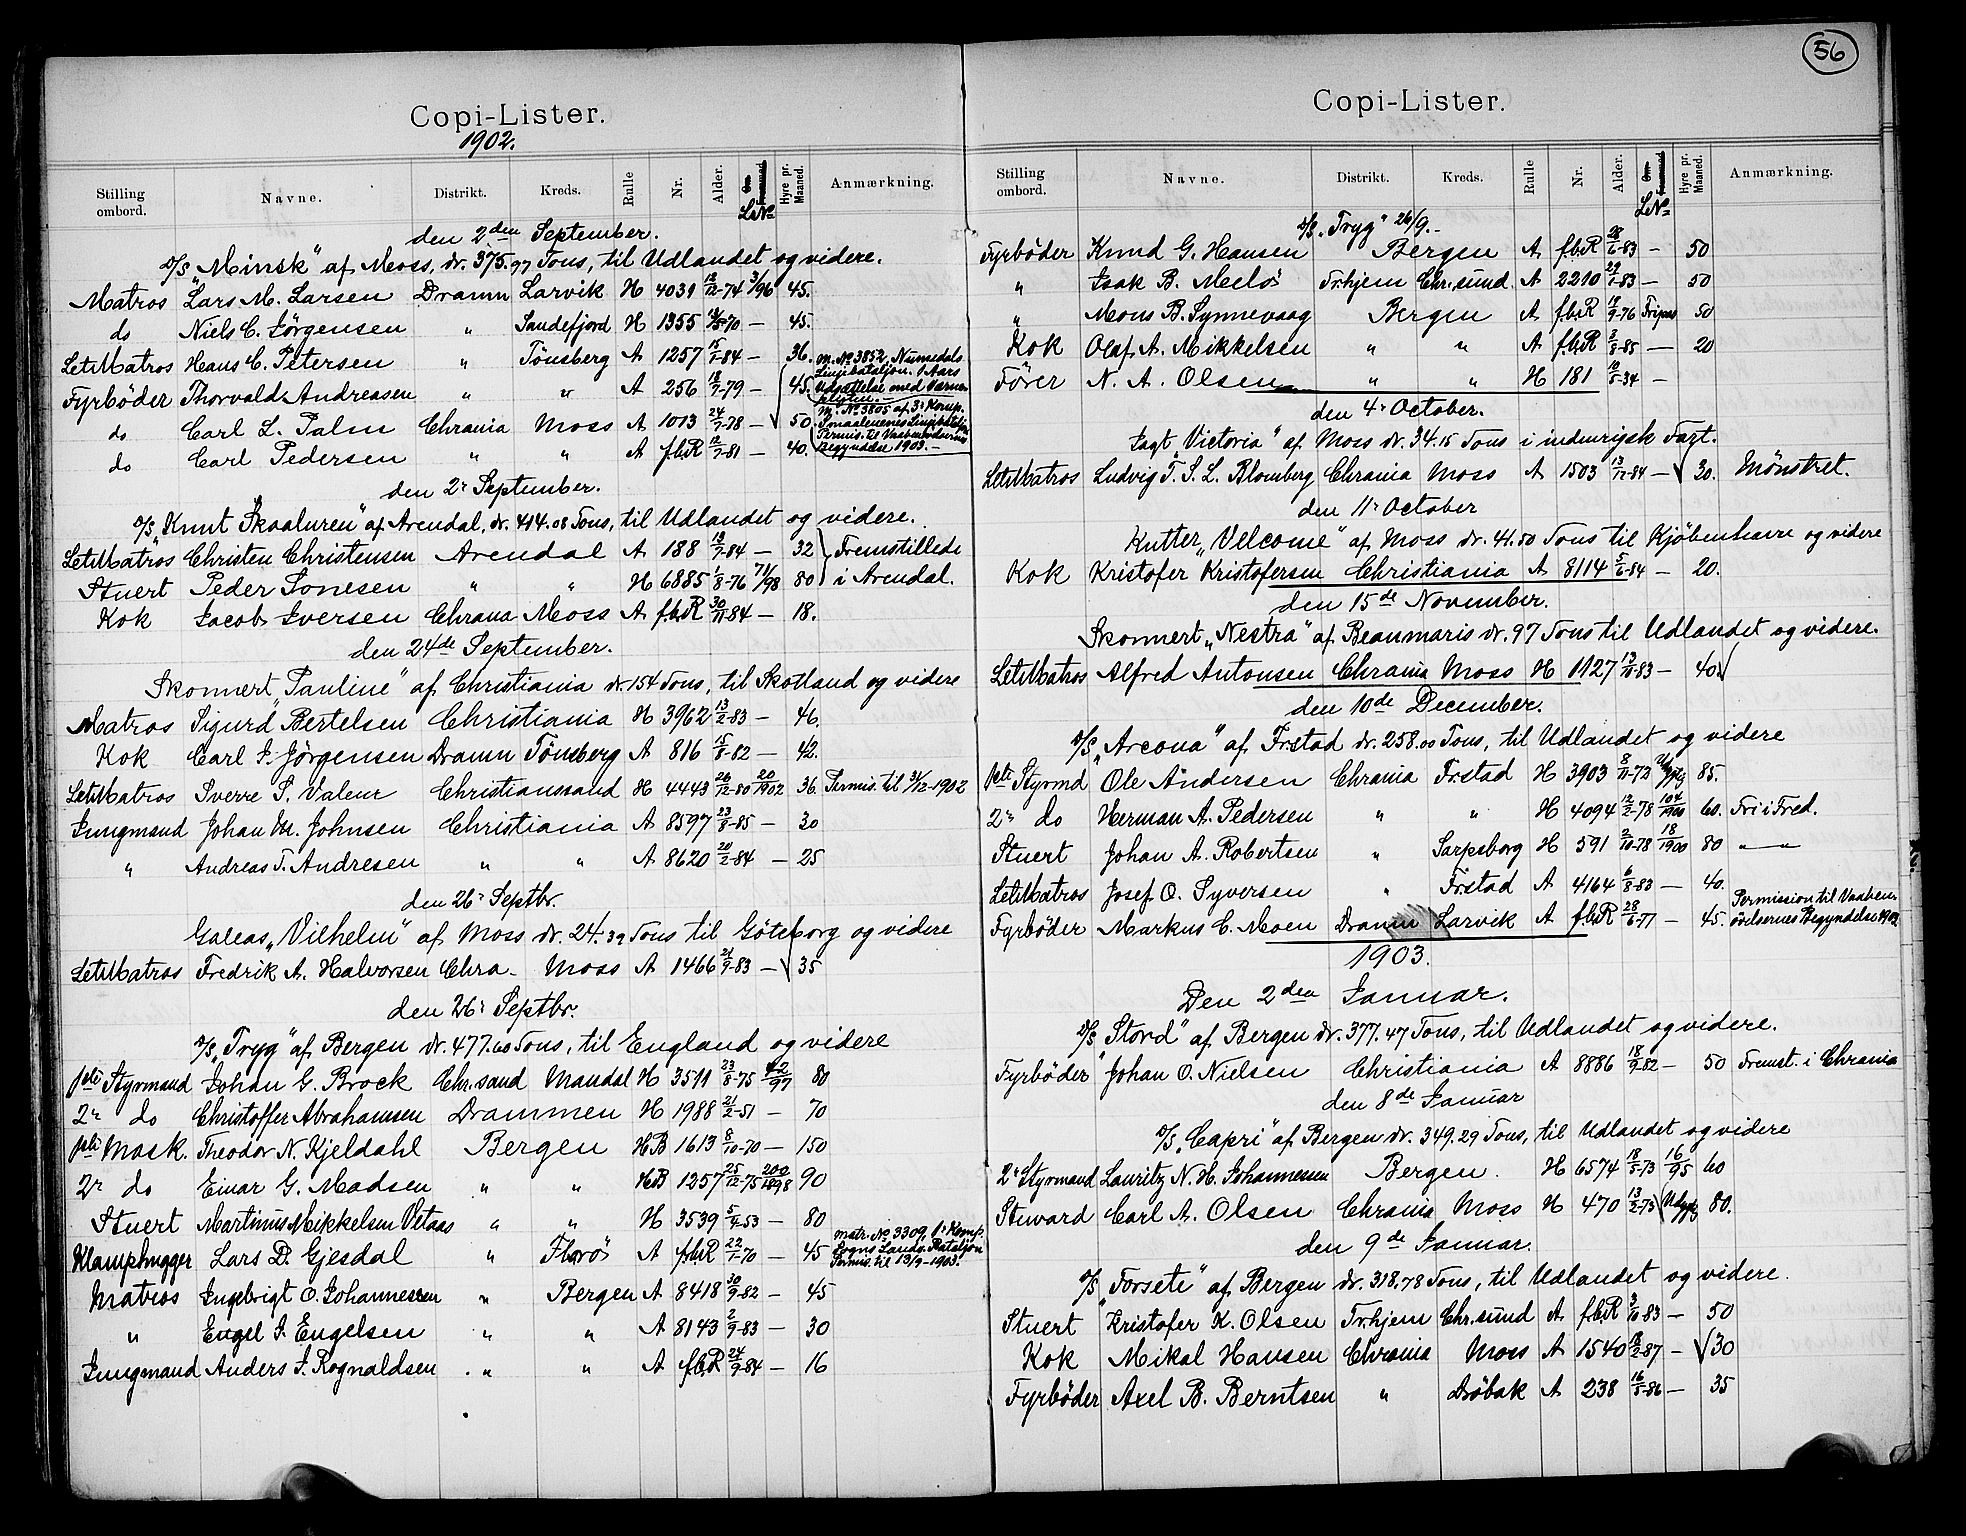 Copi-Lister.
1902.
Stilling ombord. Navne. Distrikt. Kreds. Rulle Nr. Alder. L.No Hyre pr. Maaned. Anmærkning.
den 2den September.
D/S „Minsk" af Moss, dr. 375.97 Tons, til Udlandet og videre.
Matros Lars M. Larsen Dramn Larvik H 4031 12/12-74 3/96 45.
do Niels C. Jørgensen „ Sandefjord H 1355 -70 — 45.
LetMatros Hans C. Petersen „ Tønsberg A 1257 15/1-84 — 36. m. No 3852, Numedals
Linjebataljon. Aars
Fyrbøder Thorvald Andreasen „ „ A 256 18/7-79 — 45. Udsættelse med Værne-
pligten. —
do Carl L. Palm Chrania Moss A 1013 24/7-78 — 50. m. No 3805 af 3' Komp.
Smaalenenes Linjebataljon
do Carl Pedersen „ „ A f.b.R 12/7-81 — 40. Permis. til Vaabenøvelsernes
Begyndelse 1903. —
den 2' September.
D/S „Knut Skaaluren" af Arendal, dr. 414.08 Tons, til Udlandet og videre.
LetMatros Christen Christensen Arendal A 188 13/7-84 — 32 Fremstillede
Stuert Peder Tonesen „ „ H 6885 1/8-76 71/98 80 i Arendal.
Kok Jacob Iversen Chrana Moss A f.b.R 30/11-84 — 18.
den 24de September.
Skonnert „Pauline" af Christiania dr. 154 Tons, til Skotland og videre
Matros Sigurd Bertelsen Christiania H 3962 13/2-83 — 46.
Kok Carl J. Jørgensen Dramn Tønsberg A 816 15/8-82 — 42.
LetMatros Sverre S. Valeur Christianssand H 4443 26/12-80 20/1902 36. Permis. til 31/12-1902
Jungmand Johan M. Johnsen Christiania A 8597 23/8-85 — 30
„ Andreas T. Andresen „ „ A 8620 20/2-84 — 25
den 26' Septbr.
Galeas „Vilhelm" af Moss dr. 24.39 Tons til Göteborg og videre
LetMatros Fredrik A. Halvorsen Chra- Moss A 1466 21/9-83 — 35
den 26' Septbr.
D/S „Tryg" af Bergen dr. 477.60 Tons, til England og videre
1ste Styrmand Johan G. Brock Chr.sand Mandal H 3511 23/8-75 42/97 80
2' do Christoffer Abrahamsen Drammen H 1988 21/2-51 — 70
1ste Mask. Theodor N. Kjeldahl Bergen HB 1613 8/10-70 — 150
2' do Einar G. Madsen „ „ HB 1257 25/12-75 200/1898 90
Stuert Martinus Mikkelsen Vetaas „ „ H 3539 5/4-53 — 80
Klamphugger Lars D. Gjesdal „ Florö A f.b.R 22/1-70 — 45 mstr. No 3309, 1' Komp.
Sogns Landv. Bataljon
Permis. til 13/9-1903.
Matros Ingebrigt O. Johannessen „ Bergen A 8418 30/9-82 — 45
„ Engel J. Engelsen „ „ A 8143 2/9-83 — 30
Jungmand Anders J. Rognaldsen „ „ A f.b.R 24/9-84 — 16
56
Copi-Lister.
Stilling ombord. Navne. Distrikt. Kreds. Rulle Nr. Alder. L.No Hyre pr. Maaned. Anmærkning.
D/S „Tryg" 26/9.-
Fyrbøder Knud G. Hansen Bergen A f.b.R 28/6-83 — 50
„ Isak B. Melö Tr.hjem Chr.sund. A 2210 29/1-83 — 50
„ Mons B. Synnevaag Bergen A f.b.R 19/9-76 Fripas 50
Kok Olaf A. Mikkelsen „ „ A f.b.R 3/8-85 — 20
Fører N. A. Olsen „ „ H 181 10/5-34 —
den 4' October.
Jagt „Victoria" af Moss dr. 34.15 Tons i indenrigsk Fart.
LetMatros Ludvig T. S. L. Blomberg Chrania Moss A 1503 13/12-84 — 30. Mønstret.
den 11' October
Kutter „Velcome" af Moss dr. 41.50 Tons til Kjøbenhavn og videre
Kok Kristofer Kristofersen Christiania A 8114 5/6-84 — 20.
den 15de November.
Skonnert „Nestra" af Beaumaris dr. 97 Tons til Udlandet og videre.
LetMatros Alfred Antonsen Chrania Moss H 1127 -83 — 40.
den 10de December.
D/S „Arcona" af Frstad dr. 258.00 Tons, til Udlandet og videre
1ste Styrmd Ole Andersen Chrania Frstad H 3903 8/11-72 Udygtg 85.
2' do Herman A. Pedersen „ „ H 4094 12/2-78 104/1900 60. Fri i Fred.
Stuert Johan A. Robertsen „ Sarpsborg H 591 2/10-78 18/1900 80 „ — „
LetMatros Josef O. Syversen „ Frstad A 4164 6/8-83 — 40.
Fyrbøder Markus C. Moen Dramn Larvik A f.b.R 28/6-77 — 45. Permission til Vaaben-
övelsernes Begyndelse 1903.
1903.
Den 2den Januar.
D/S „Stord" af Bergen dr. 377.47 Tons, til Udlandet og videre.
Fyrbøder Johan O. Nielsen Christiania A 8886 18/9-82 — 50 Fremst. i Chrania
den 8de Januar
D/S „Capri" af Bergen dr. 349.29 Tons, til Udlandet og videre
2' Styrmand Lauritz N. H. Johannessen Bergen. H 6574 18/5-73 16/95 60
Stuvard Carl A. Olsen Chrania Moss H 470 13/2-73 Udygtg 80.
den 9de Januar.
D/S „Forsete" af Bergen dr. 318.78 Tons, til Udlandet og videre.
Stuert Kristofer K. Olsen Tr.hjem Chr.sund A f.b.R 3/10-83 — 50
Kok Mikal Hansen Chrania Moss A 1540 18/2-87 — 30
Fyrbøder Axel B. Berntsen „ Dröbak A 238 16/5-86 — 35